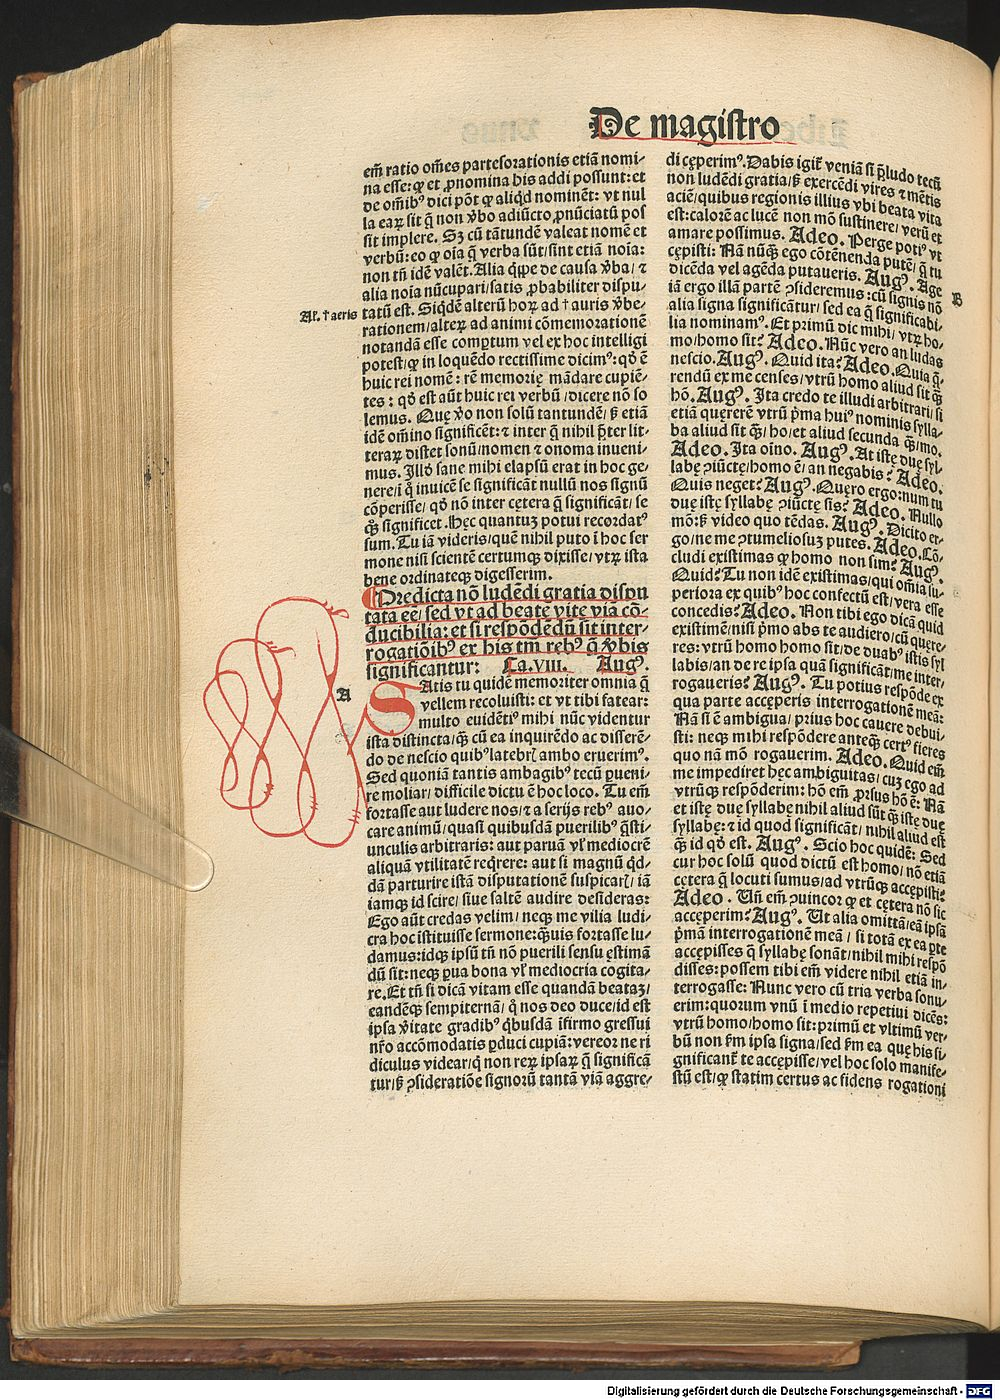 De magistro
em̄ ratio om̄es partesorationis etiā nomi-
na esse: ꝙ et ꝓnomina his addi possunt: et
de om̄ibꝰ dici pōt ꝙ aliqd nominēt: vt nul
la eaꝝ sit q̄ non v̄bo adiūcto ꝓnūciatū pos
sit implere. Sꝫ cū tātundē valeat nomē et
verbū: eo ꝙ oīa q̄ verba sūt/sint etiā noīa:
non tn̄ idē valēt. Alia q̄ꝑpe de causa v̄ba/ ⁊
alia noīa nūcupari/satis ꝓbabiliter dispu
Al'. †aeris
tatū est. Siqdē alterū hoꝝ ad †auris v̄be-
rationem/alteꝝ ad animi cōmemorationē
notandā esse comꝑtum vel ex hoc intelligi
potest/ꝙ in loquēdo rectissime dicimꝰ: qd̄ ē
huic rei nomē: rē memorię mādare cupiē-
tes: qd̄ est aūt huic rei verbū/dicere nō so
lemus. Quę v̄o non solū tantundē/ sꝫ etiā
idē om̄ino significēt: ⁊ inter q̄ nihil p̄ter lit-
teraꝝ distet sonū/nomen ⁊ onoma inueni-
mus. Illd̄ sane mihi elapsū erat in hoc ge-
nere/ī q̄ inuicē se significāt nullū nos signū
cōperisse/ qd̄ nō inter cętera q̄ significāt/ se
qq̄ significet. Hęc quantuꝫ potui recordatꝰ
sum. Tu iā videris/quē nihil puto ī hoc ser
mone nisi scientē certumqꝫ dixisse/vtꝝ ista
bene ordinateqꝫ digesserim.
Predicta nō ludēdi gratia dispu
tata eē/ sed vt ad beatę vitę viā cō-
ducibilia: et si respōdēdū sit inter-
rogatiōibꝰ ex his tm̄ rebꝰ q̄ v̄bis
significantur: Ca.VIII. Augꝰ.
A
Satis tu quidē memoriter omnia q̄
vellem recoluisti: et vt tibi fatear:
multo euidētiꝰ mihi nūc videntur
ista distincta/qꝫ cū ea inquirēdo ac disserē-
do de nescio quibꝰ latebrꝭ ambo eruerimꝰ.
Sed quoniā tantis ambagibꝰ tecū ꝑueni-
re moliar/ difficile dictu ē hoc loco. Tu em̄
fortasse aut ludere nos/⁊ a serijs rebꝰ auo-
care animū/quasi quibusdā puerilibꝰ q̄sti-
unculis arbitraris: aut paruā vl̓ mediocrē
aliquā vtilitatē reqrere: aut si magnū qd-
dā parturire istā disputationē suspicarꝭ/ iā
iamqꝫ id scire/ siue saltē audire desideras:
Ego aūt credas velim/ neqꝫ me vilia ludi-
cra hoc īstituisse sermone: qꝫuis fortasse lu-
damus: idqꝫ ipsū tn̄ nō puerili sensu ęstimā
dū sit: neqꝫ ꝑua bona vl̓ mediocria cogita-
re. Et tn̄ si dicā vitam esse quandā beataꝫ/
eandēqꝫ sempiternā/ q̄ nos deo duce/id est
ipsa v̄itate gradibꝰ qbusdā īfirmo gressui
nr̄o accōmodatis ꝑduci cupiā: vereor ne ri
diculus videar/q̄ non reꝝ ipsaꝝ q̄ significā
tur/sꝫ ↄsideratiōe signorū tantā viā aggre-
di cęperimꝰ. Dabis igit̃ veniā si p̄ludo tecū
non ludēdi gratia/sꝫ exercēdi vires ⁊ mētis
aciē/quibus regionis illius vbi beata vita
est: calorē ac lucē non mō sustinere/ verū et
amare possimus. Adeo. Perge potiꝰ vt
cępisti: Nā nūqꝫ ego cōtēnenda putē/ q̄ tu
dicēda vel agēda putaueris. Augꝰ. Age
B
iā ergo illā partē ↄsideremus: cū signis nō
alia signa significātur/ sed ea q̄ significabi-
lia nominamꝰ. Et primū dic mihi/ vtꝝ ho-
mo/homo sit? Adeo. Nūc vero an ludas
nescio. Augꝰ. Quid ita? Adeo. Quia q̄-
rendū ex me censes/ vtrū homo aliud sit qꝫ
hō. Augꝰ. Ita credo te illudi arbitrari/ si
etiā quęrerē vtrū p̄ma huiꝰ nominis sylla-
ba aliud sit qꝫ/ ho/et aliud secunda qꝫ/mo.
Adeo. Ita oīno. Augꝰ. At istę duę syl-
labę ↄiūctę/homo ē/ an negabis? Adeo.
Quis neget? Augꝰ. Quęro ergo: num tu
duę istę syllabę ↄiūctę sis? Adeo. Nullo
mō: sꝫ video quo tēdas. Augꝰ. Dicito er-
go/ne me ↄtumeliosuꝫ putes. Adeo. Cō-
cludi existimas ꝙ homo non sim? Augꝰ.
Quid? Tu non idē existimas/qui omīa su-
periora ex quibꝰ hoc confectū est/ vera esse
concedis? Adeo. Non tibi ego dicā quid
existimē/nisi p̄mo abs te audiero/cū quęre-
res: vtrū homo homo sit/de duabꝰ istis syl
labis/an de re ipsa quā significāt/me inter-
rogaueris? Augꝰ. Tu potius respōde ex
qua parte acceperis interrogationē meā:
Nā si ē ambigua/ prius hoc cauere debui-
sti: neqꝫ mihi respōdere anteqꝫ certꝰ fieres
quo nā mō rogauerim. Adeo. Quid em̄
me impediret hęc ambiguitas/ cuꝫ ego ad
vtrūqꝫ respōderim: hō em̄ ꝓrsus hō ē: Nā
et istę duę syllabę nihil aliud sūt qꝫ istę duę
syllabę: ⁊ id quod significāt/ nihil aliud est
qꝫ id qd̄ est. Augꝰ. Scio hoc quidē: Sed
cur hoc solū quod dictū est homo/ nō etiā
cętera q̄ locuti sumus/ad vtrūqꝫ accępisti?
Adeo. Vn̄ em̄ ↄuincor ꝙ et cętera nō sic
acceperim? Augꝰ. Vt alia omittā/eā ipsā
p̄mā interrogationē meā/ si totā ex ea ꝑte
accępisses q̄ syllabę sonāt/nihil mihi respō
disses: possem tibi em̄ videre nihil etiā in-
terrogasse: Nunc vero cū tria verba sonu-
erim: quorum vnū ī medio repetiui dicēs:
vtrū homo/homo sit: primū et vltimū ver-
bū non ẜm ipsa signa/sed ẜm ea quę his si-
gnificant̃ te accępisse/vel hoc solo manife-
stū est/ꝙ statim certus ac fidens rogationi
Digitalisierung gefördert durch die Deutsche Forschungsgemeinschaft - DFG